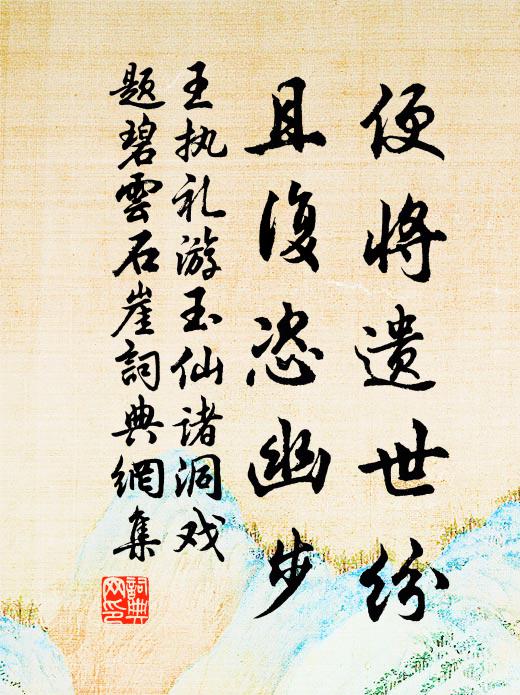 便将遗世纷
且复恣幽步
王执礼游玉仙诸洞戏
题碧雲石崖詞典網集
詞典網印